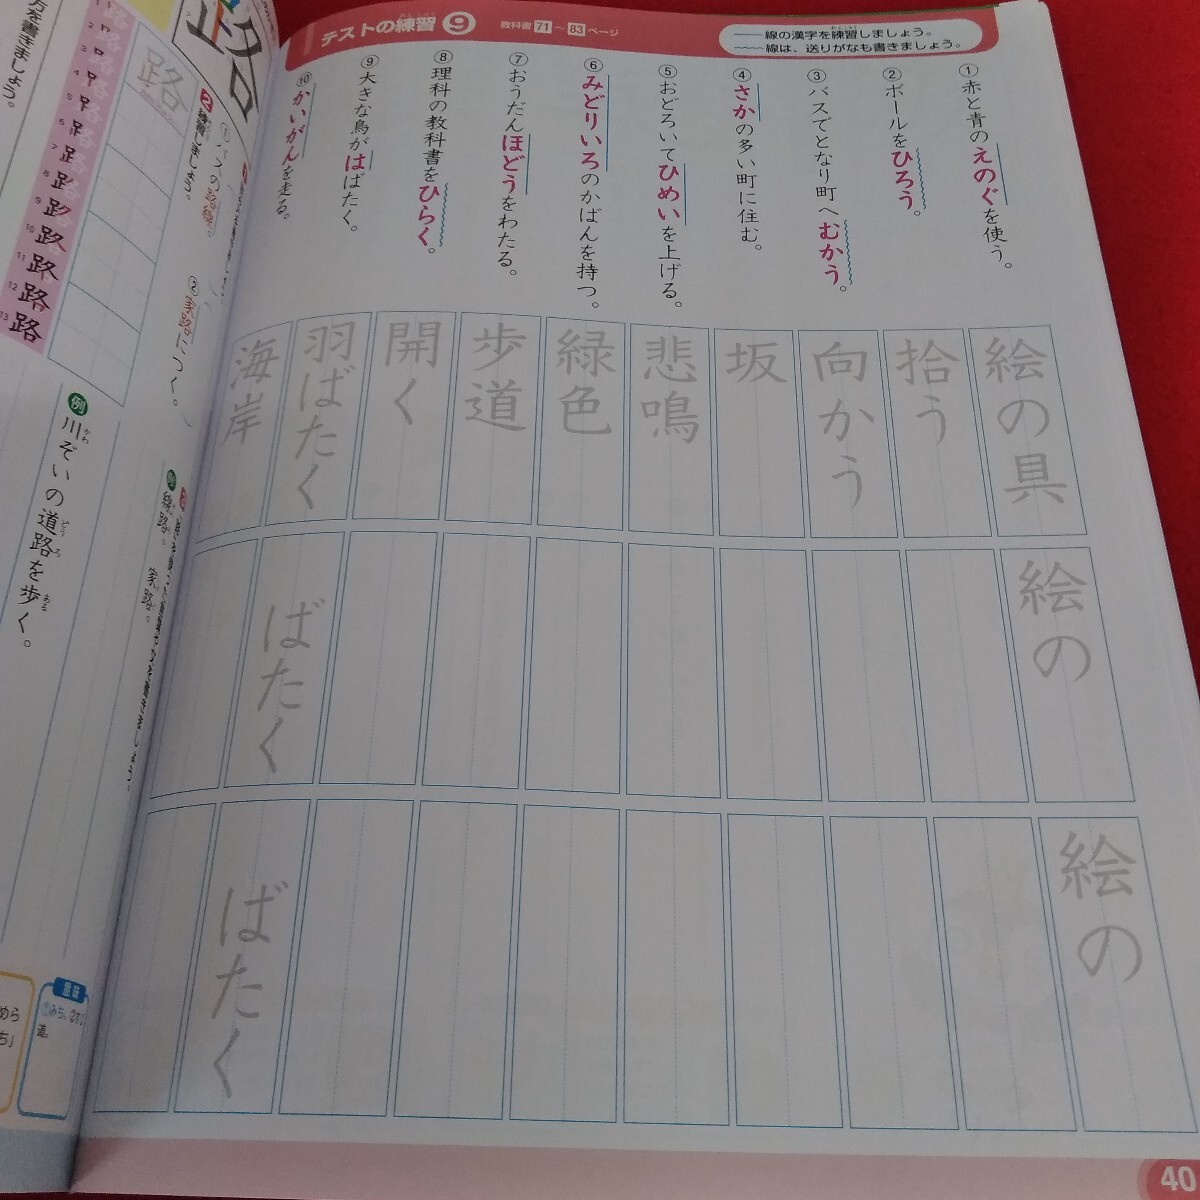 テストの練習 ⑨
教科書 71〜83ページ
線の漢字を練習しましょう。
線は、送りがなも書きましょう。
①赤と青のえのぐを使う。
②ボールをひろう。
③バスでとなり町へむかう。
④さかの多い町に住む。
⑤おどろいてひめいを上げる。
⑥みどりいろのかばんを持つ。
⑦おうだんほどうをわたる。
⑧理科の教科書をひらく。
⑨大きな鳥がはばたく。
⑩かいがんを走る。
絵の具
拾う
向かう
坂
悲鳴
緑色
歩道
開く
羽ばたく
海岸
絵の
ばたく
絵の
ばたく
40
路
路
2 練習しましょう。
①バスの路線。
②家路につく。
線路。 家路。
例 川ぞいの道路を歩く。
意味
①みち。
道。